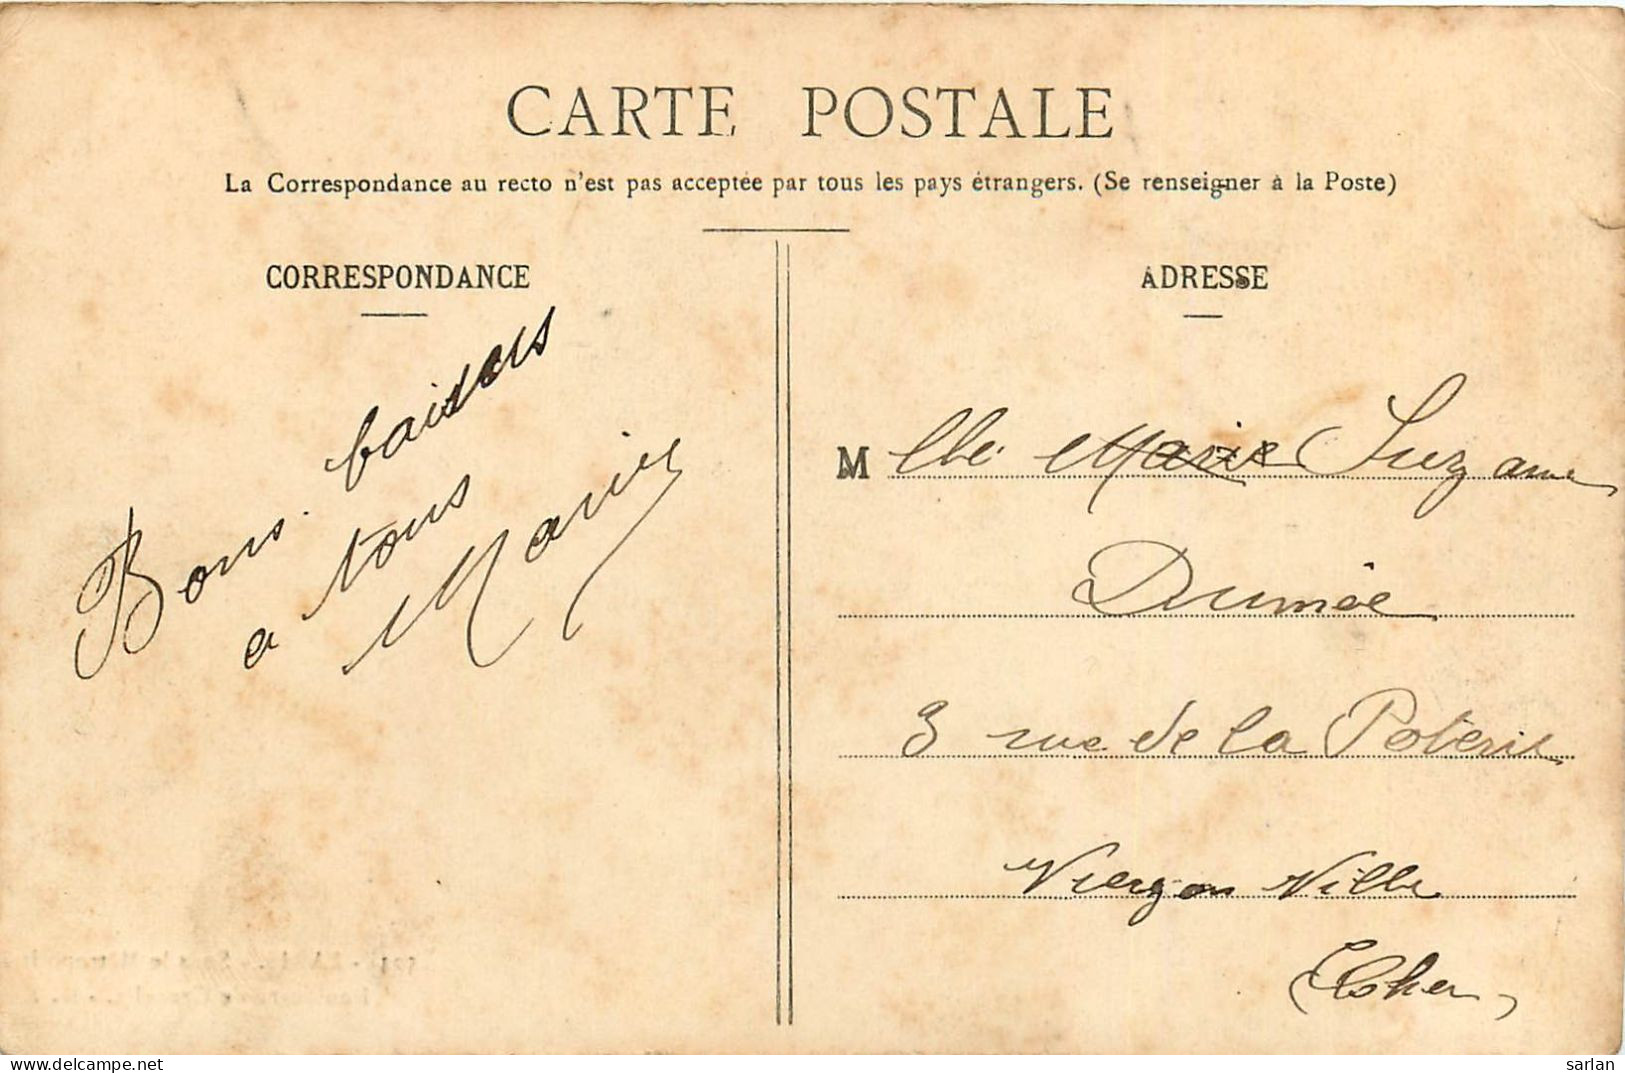 CARTE POSTALE
La Correspondance au recto n'est pas acceptée par tous les pays étrangers. (Se renseigner à la Poste)
CORRESPONDANCE
Bons baisers
a tous
Marie
ADRESSE
Mlle Marie Suzanne
Dumée
3 rue de la Poterie
Vierzon Ville
(Cher)
sarlan